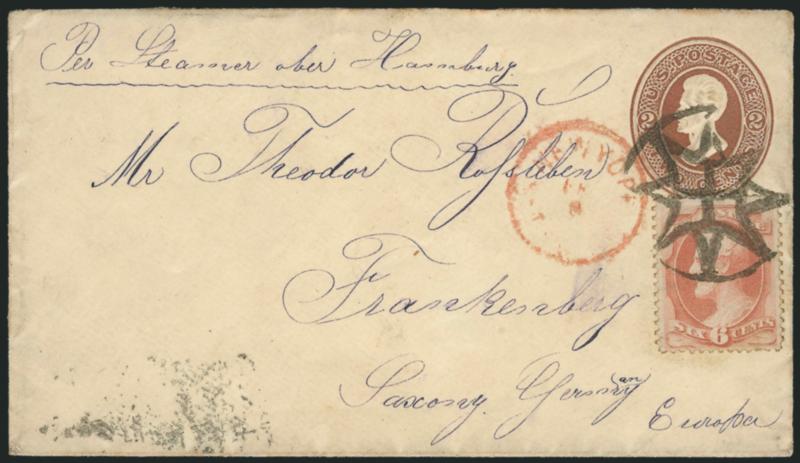 Per Steamer ober Hamburg.
U.S. POSTAGE
2 2
Mr Theodor Roſsleben
NEW YORK
Frankenberg
SIX 6 CENTS
Saxony. Germany
Europa